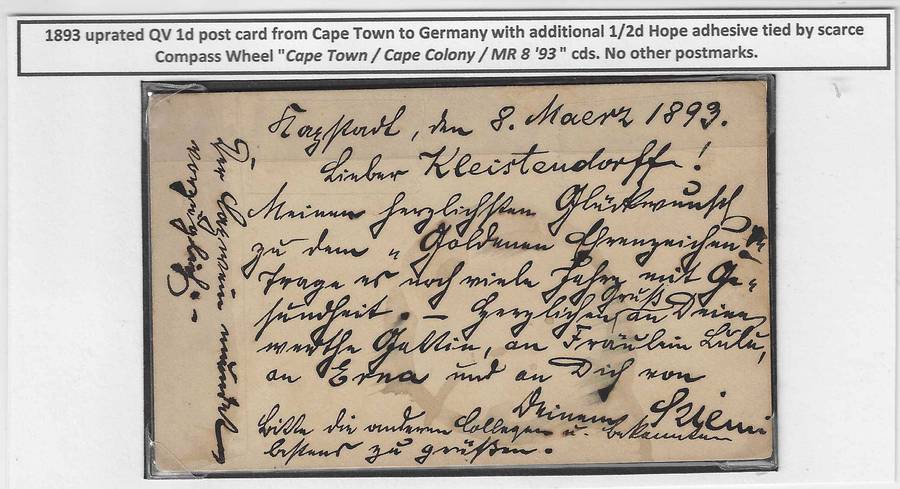 1893 uprated QV 1d post card from Cape Town to Germany with additional 1/2d Hope adhesive tied by scarce
Compass Wheel "Cape Town / Cape Colony / MR 8 '93" cds. No other postmarks.
Kapstadt, den 8. Maerz 1893.
Lieber Kleistendorff!
Meinen herzlichsten Glückwunsch
zu dem „Goldenen Ehrenzeichen"
Trage es noch viele Jahre mit Ge-
sundheit. — Herzlichen Gruß an Deine
werthe Gattin, an Fräulein Lulu,
an Erna und an Dich von
Deinem
Bitte die anderen Collegen u. bekannten
bestens zu grüßen.
Der mundet
vorzüglich. -